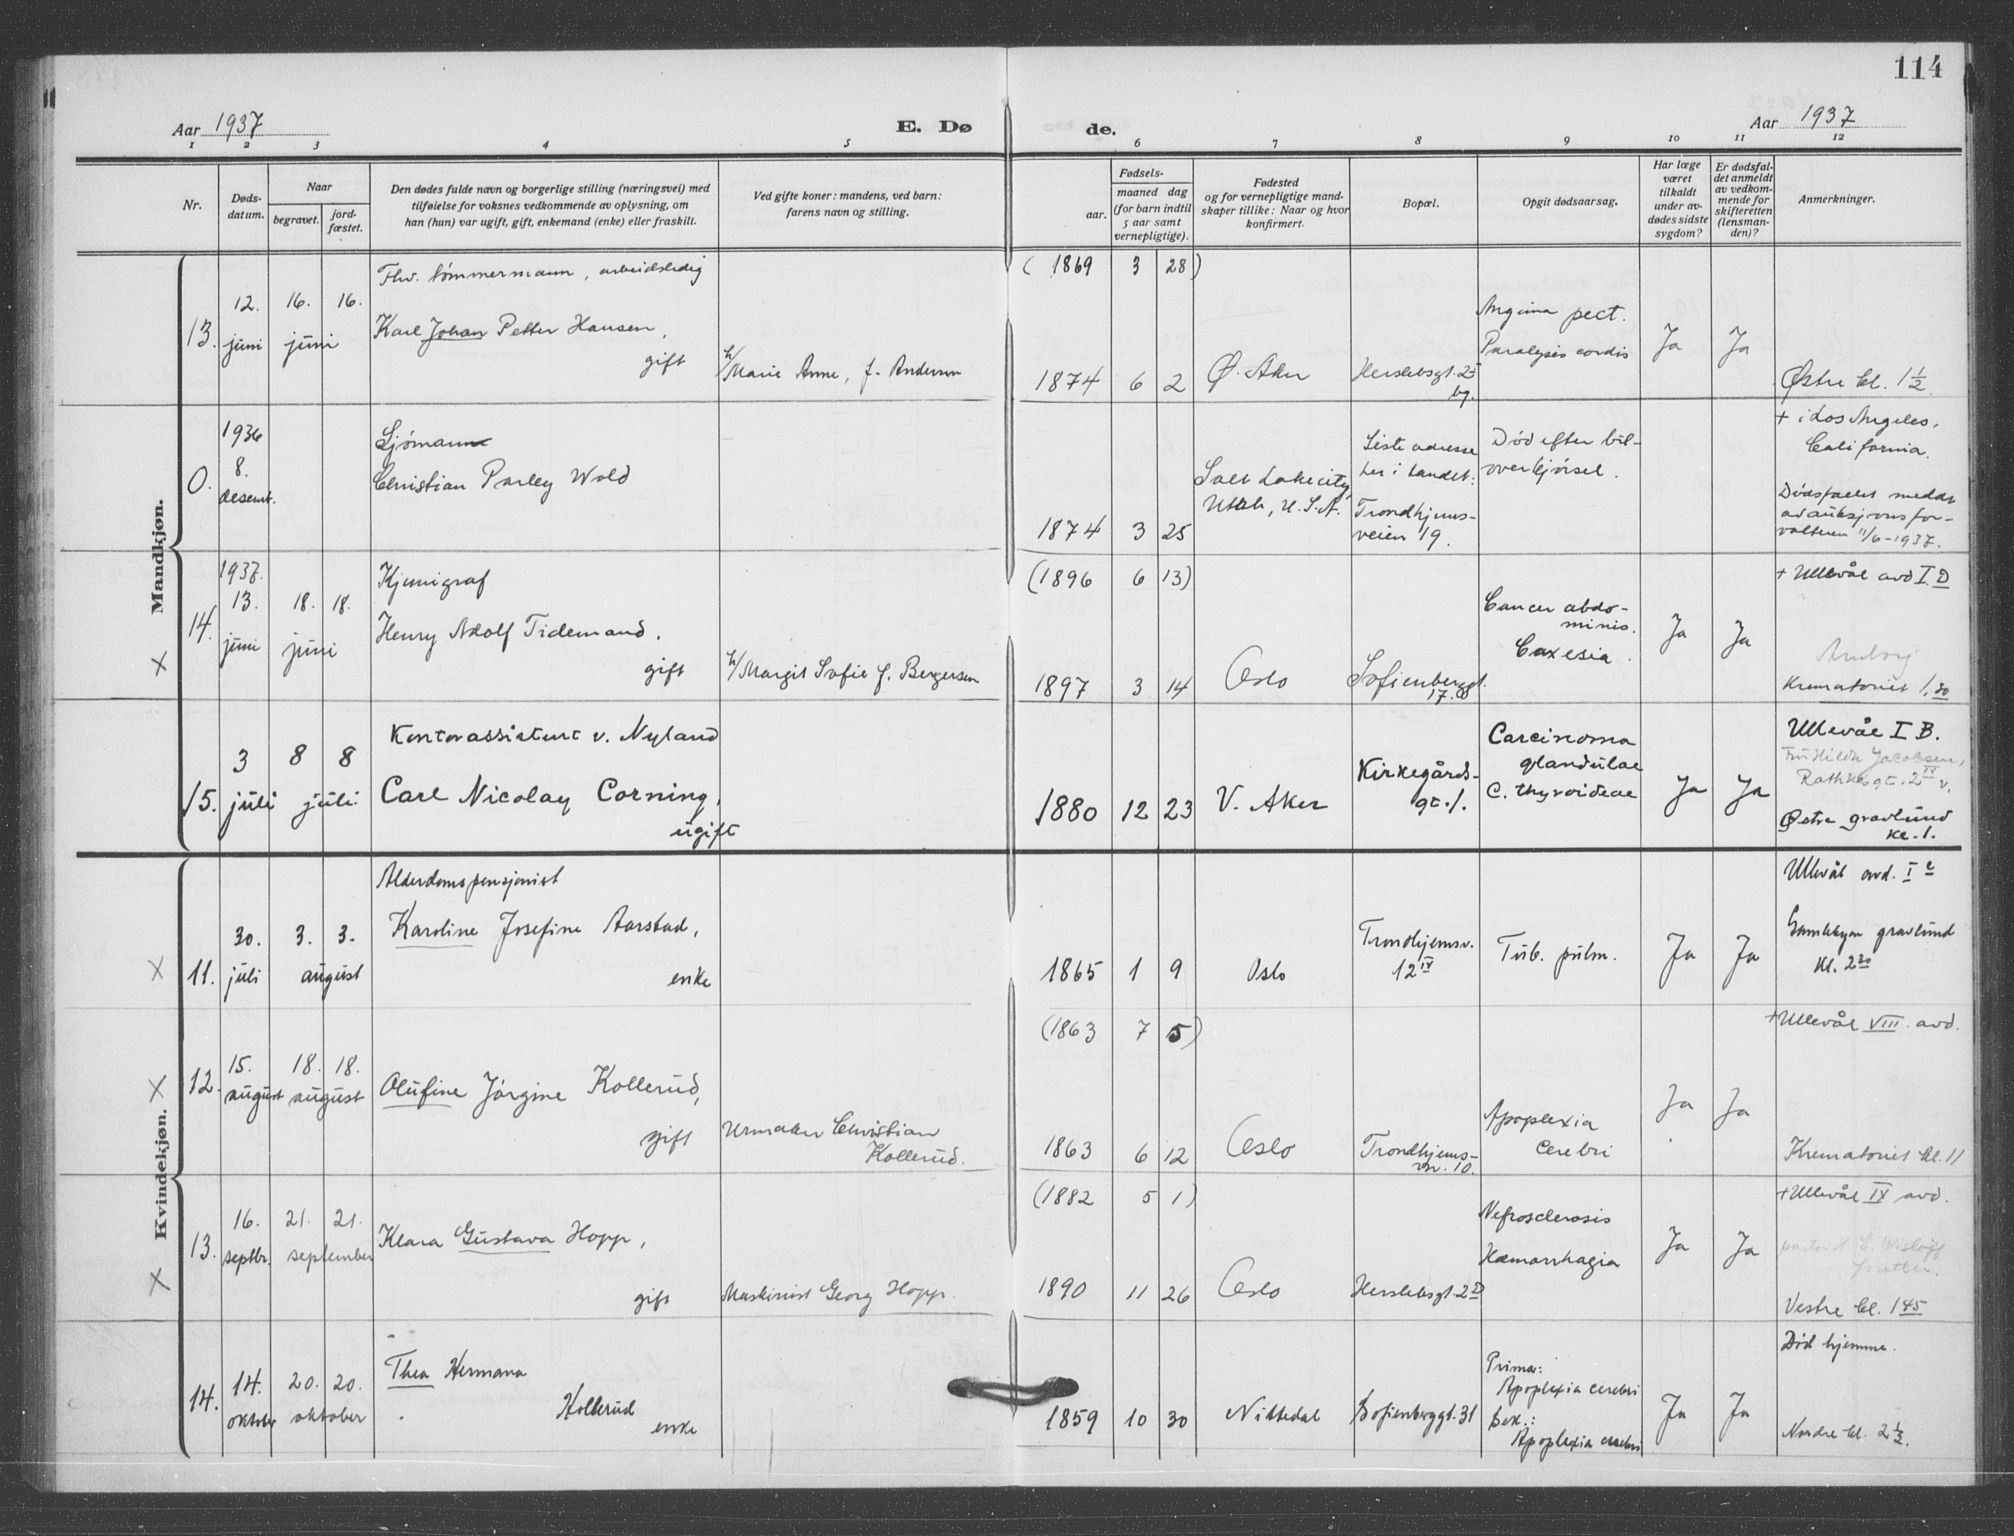 114
Aar 1937
E. Dø
de.
Aar 1937
1 2 3 4 5 6 7 8 9 10 11 12
Nr.
Døds-
datum.
Naar
begravet.
jord-
fæstet.
Den dødes fulde navn og borgerlige stilling (næringsvei) med
tilføielse for voksnes vedkommende av oplysning, om
han (hun) var ugift, gift, enkemand (enke) eller fraskilt.
Ved gifte koner: mandens, ved barn:
farens navn og stilling.
Fødsels-
aar.
maaned dag
(for barn indtil
5 aar samt
vernepligtige).
Fødested
og for vernepligtige mand-
skaper tillike: Naar og hvor
konfirmert.
Bopæl.
Opgit dødsaarsag.
Har læge
været
tilkaldt
under av-
dødes sidste
sygdom?
Er dødsfal-
det anmeldt
av vedkom-
mende for
skifteretten
(lensman-
den)?
Anmerkninger.
Mandkjøn.
13.
12.
juni
16. 16.
juni
Fhv. tømmermann, arbeidsledig
Karl Johan Petter Hansen,
gift
h/Marie Anne, f. Andersen
(1869 3 28)
1874 6 2
Ø. Aker
Herslebsgt. 25
bg.
Angina pect.
Paralysis cordis
Ja
Ja
Østre kl. 1 1/2
0.
1936
8.
desemt.
Sjømann
Christian Parley Wold
1874 3 25
Salt Lake city,
Utah, U.S.A.
Siste adresse
her i landet:
Trondhjems-
veien 19.
Død efter bil-
overkjørsel.
+ i Los Angeles,
California.
Dødsfallet meddt
av auksjonsfor-
valteren 11/6-1937.
14.
1937.
13.
juni
18. 18.
juni
Kjemigraf
Henry Adolf Tidemand,
gift
h/Margit Sofie f. Bergersen
(1896 6 13)
1897 3 14
Oslo
Sofienberggt.
17.
Cancer abdo-
minis.
Caxesia.
Ja
Ja
+ Ullevål avd I D
Krematoriet 1.30
15.
3
juli
8 8
juli.
Kontorassistent v. Nyland
Carl Nicolay Corning,
ugift
1880 12 23
V. Aker
Kirkegårds-
gt. 1.
Carcinoma
glandulae
C. thyroideae
Ja
Ja
Ullevål I B.
Fru Hilda Jacobsen,
Rathkes gt. 2 IV v.
Østre gravlund
kl. 1.
Kvindekjøn.
11.
30.
juli
3. 3.
august
Alderdomspensjonist
Karoline Josefine Aarstad,
enke
1865 1 9
Oslo
Trondhjemsv.
12 IV
Tub. pulm.
Ja
Ja
Ullevål avd. I c
Gamlebyen gravlund
kl. 2 30
12.
15.
august
18. 18.
august
Olufine Jørgine Kollerud,
gift
Urmaker Christian
Kollerud.
(1863 7 5)
1863 6 12
Oslo
Trondhjems-
vn. 10.
Apoplexia
cerebri
Ja
Ja
+Ullevål VIII. avd.
Krematoriet kl. 11
13.
16.
septbr.
21. 21.
september
Klara Gustava Hopp,
gift
Maskinist Georg Hopp.
(1882 5 1)
1890 11 26
Oslo
Herslebsgt. 2 D
Nefrosclerosis
Hæmorrhagia
Ja
Ja
+Ullevål IX avd.
Vestre kl. 1 45
14.
14.
oktober
20. 20.
oktober
Thea Hermana
Kollerud
enke
1859 10 30
Nittedal
Sofienberggt. 31
Primær:
Apoplexia cerebri
Sek.:
Apoplexia cerebri
Ja
Ja
Død hjemme.
Nordre kl. 2 1/2.